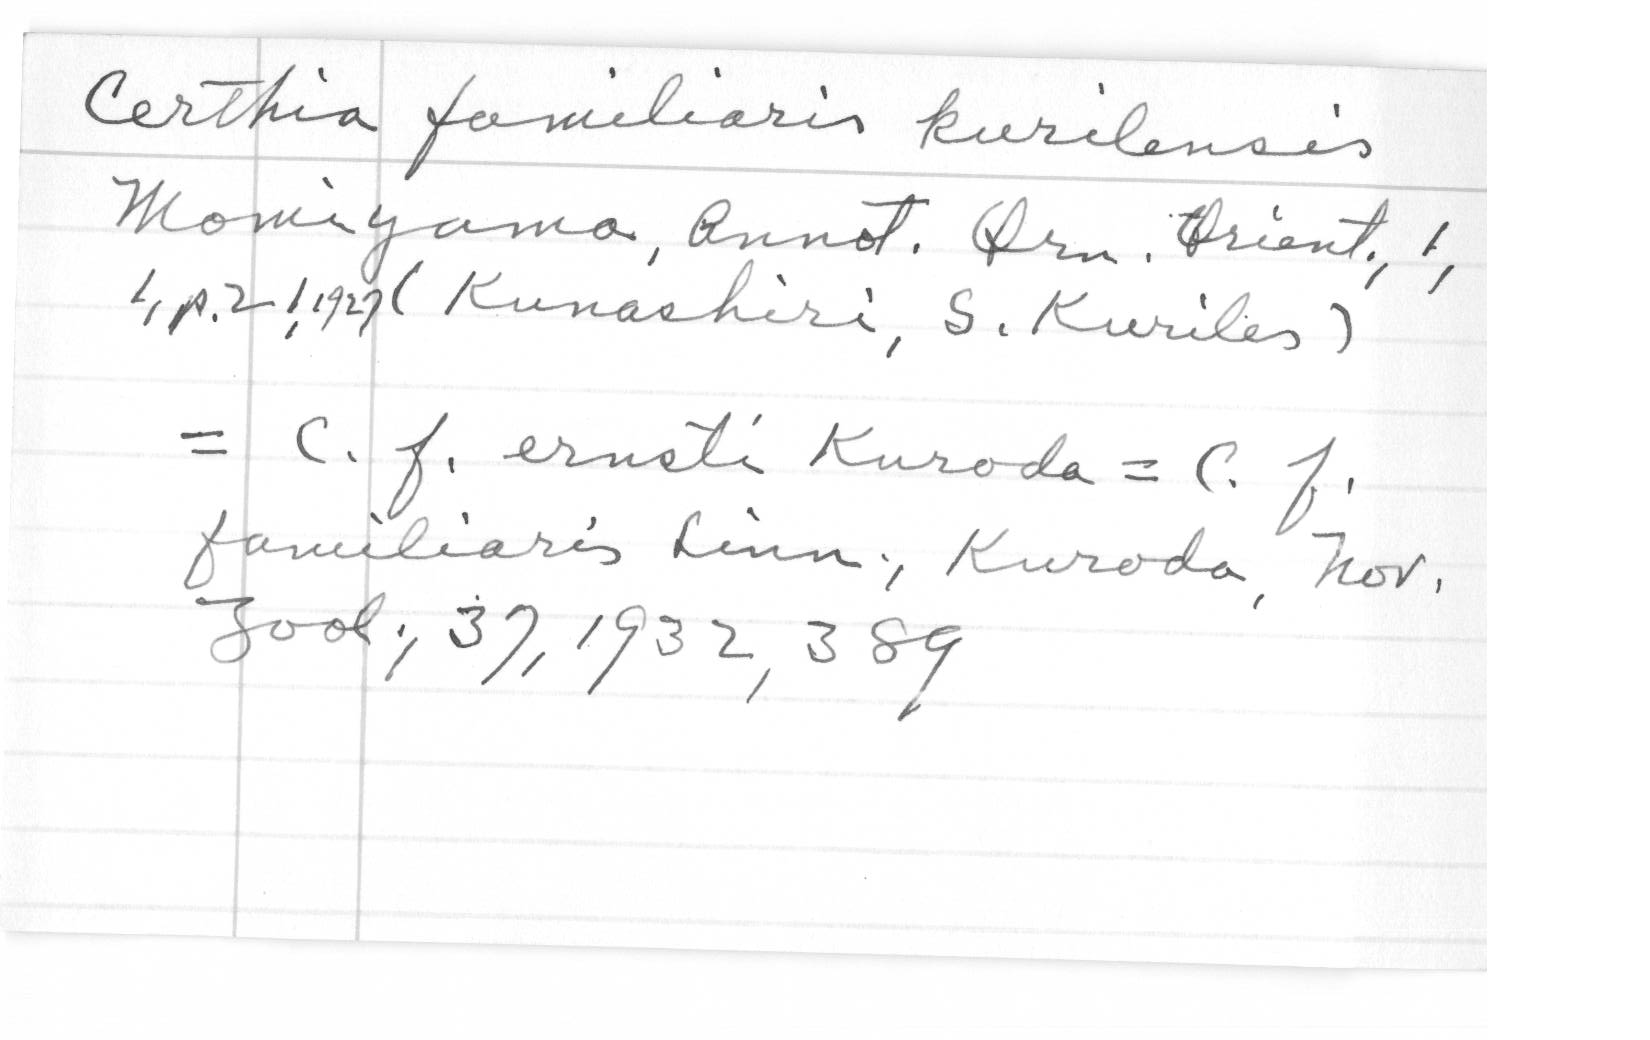 Certhia familiaris kurilensis
Momiyama, Annot. Orn. Orient., 1,
1, p. 21, 1927 (Kunashiri, S. Kuriles)
= C. f. ernsti Kuroda = C. f.
familiaris Linn., Kuroda, Nov.
Zool., 37, 1932, 389